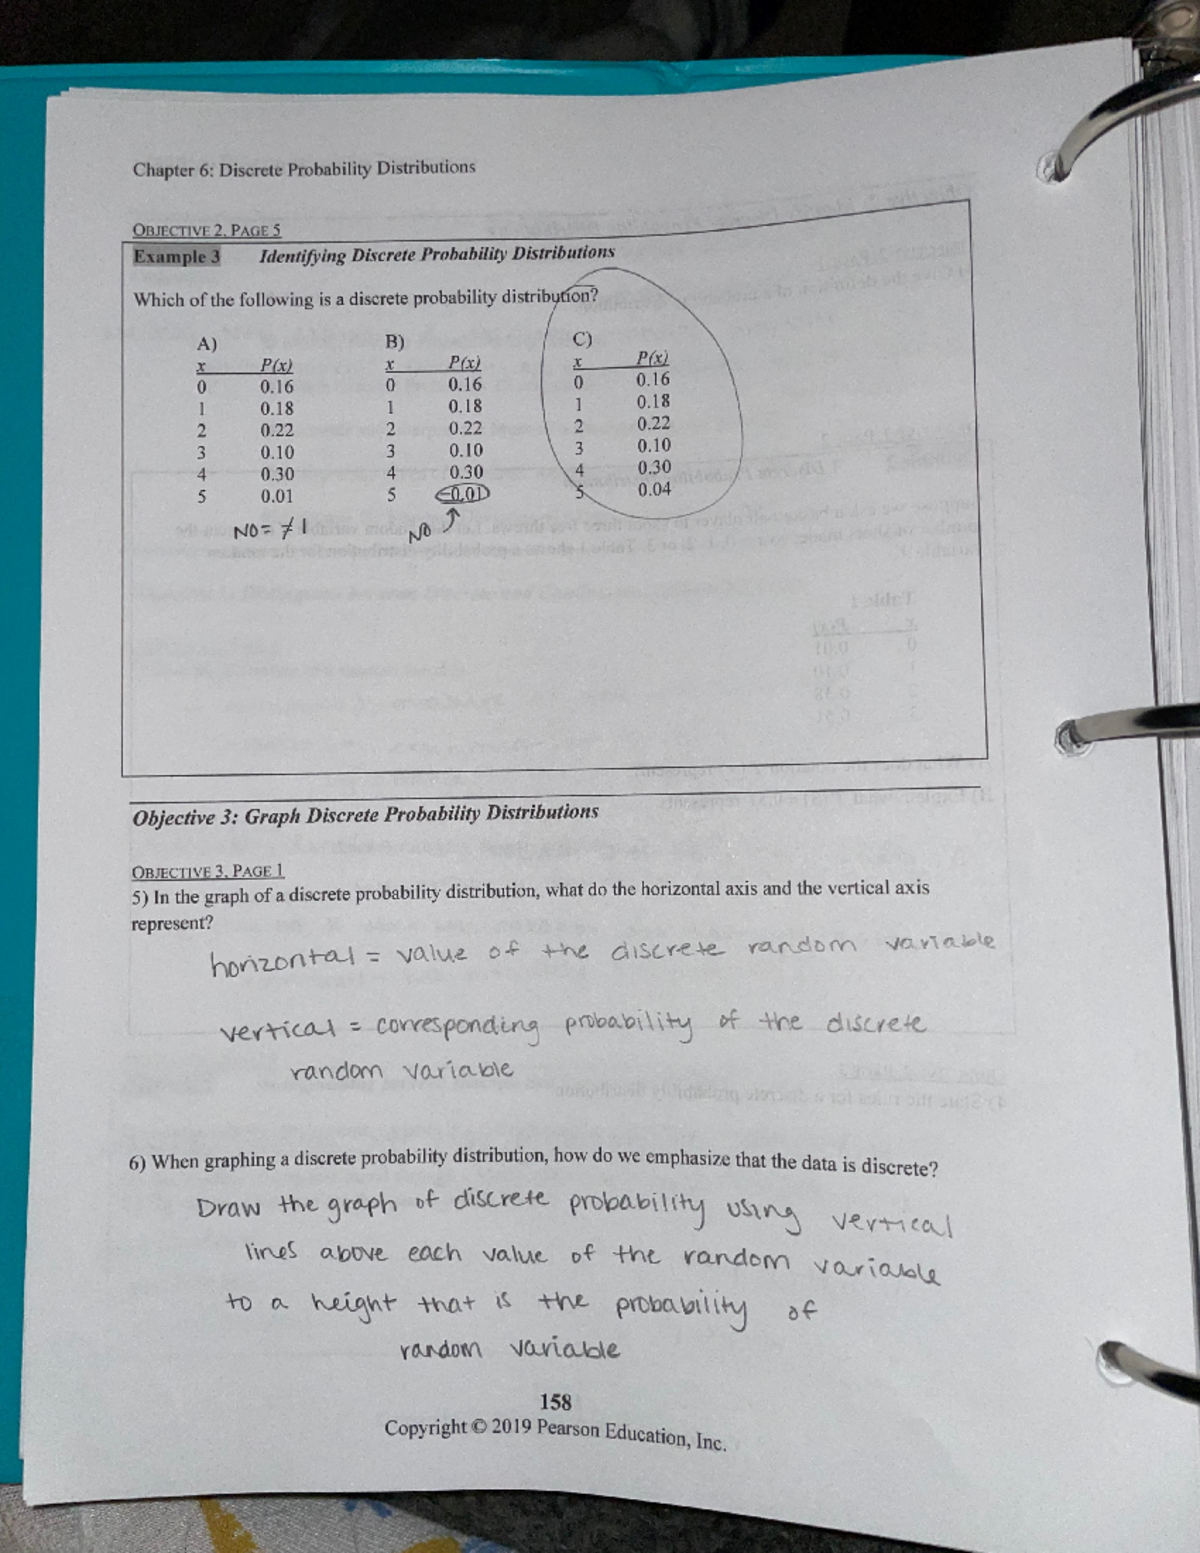 Chapter 6: Discrete Probability Distributions
OBJECTIVE 2, PAGE 5
Example 3 Identifying Discrete Probability Distributions
Which of the following is a discrete probability distribution?
A) B) C)
x P(x) x P(x) x P(x)
0 0.16 0 0.16 0 0.16
1 0.18 1 0.18 1 0.18
2 0.22 2 0.22 2 0.22
3 0.10 3 0.10 3 0.10
4 0.30 4 0.30 4 0.30
5 0.01 5 -0.01 5 0.04
NO = ≠ 1 NO ↑
Objective 3: Graph Discrete Probability Distributions
OBJECTIVE 3, PAGE 1
5) In the graph of a discrete probability distribution, what do the horizontal axis and the vertical axis
represent?
horizontal = value of the discrete random variable
vertical = corresponding probability of the discrete
random variable
6) When graphing a discrete probability distribution, how do we emphasize that the data is discrete?
Draw the graph of discrete probability using vertical
lines above each value of the random variable
to a height that is the probability of
random variable
158
Copyright © 2019 Pearson Education, Inc.